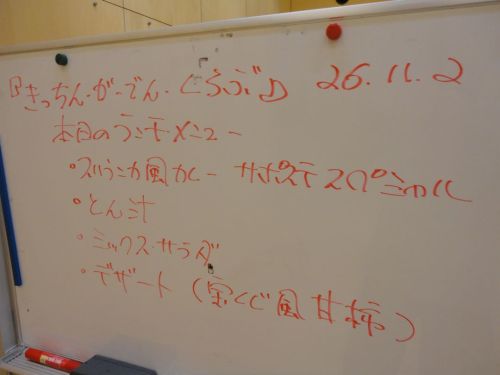 『きっちん・が-でん・くらぶ』 26.11.2
本日のランチメニュー
・スリランカ風カレー サポステスペシャル
・とん汁
・ミックスサラダ
・デザート (宝くじ風甘柿)